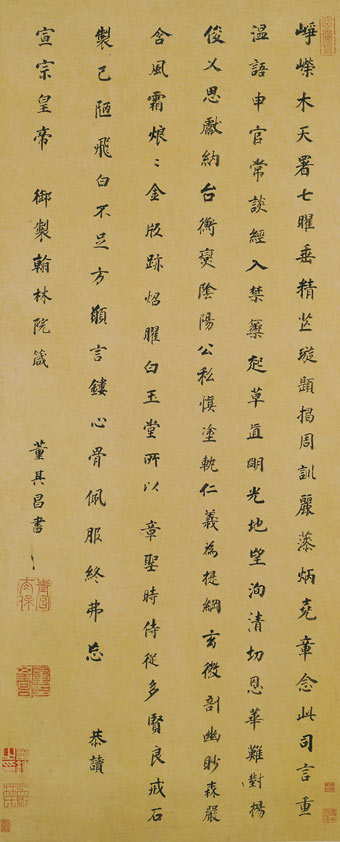 崢嶸木天署七曜垂精芒璇題揭周訓麗藻炳堯章念此司言重
溫語申官常談經入禁籞起草直明光地望洵清切恩華難對揚
俊乂思獻納台衡變陰陽公私慎塗軌仁義為提綱玄微剖幽眇森嚴
含風霜煌〻金版跡焰曜白玉堂所以章聖時侍從多賢良戒石
製已陋飛白不足方願言鏤心骨佩服終弗忘　恭讀
宣宗皇帝　御製翰林院箴
董其昌書